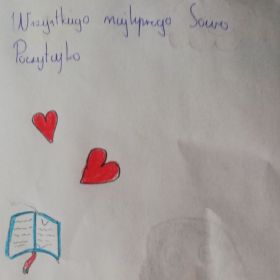 Wszystkiego najlepszego Sowo
Poczytajko